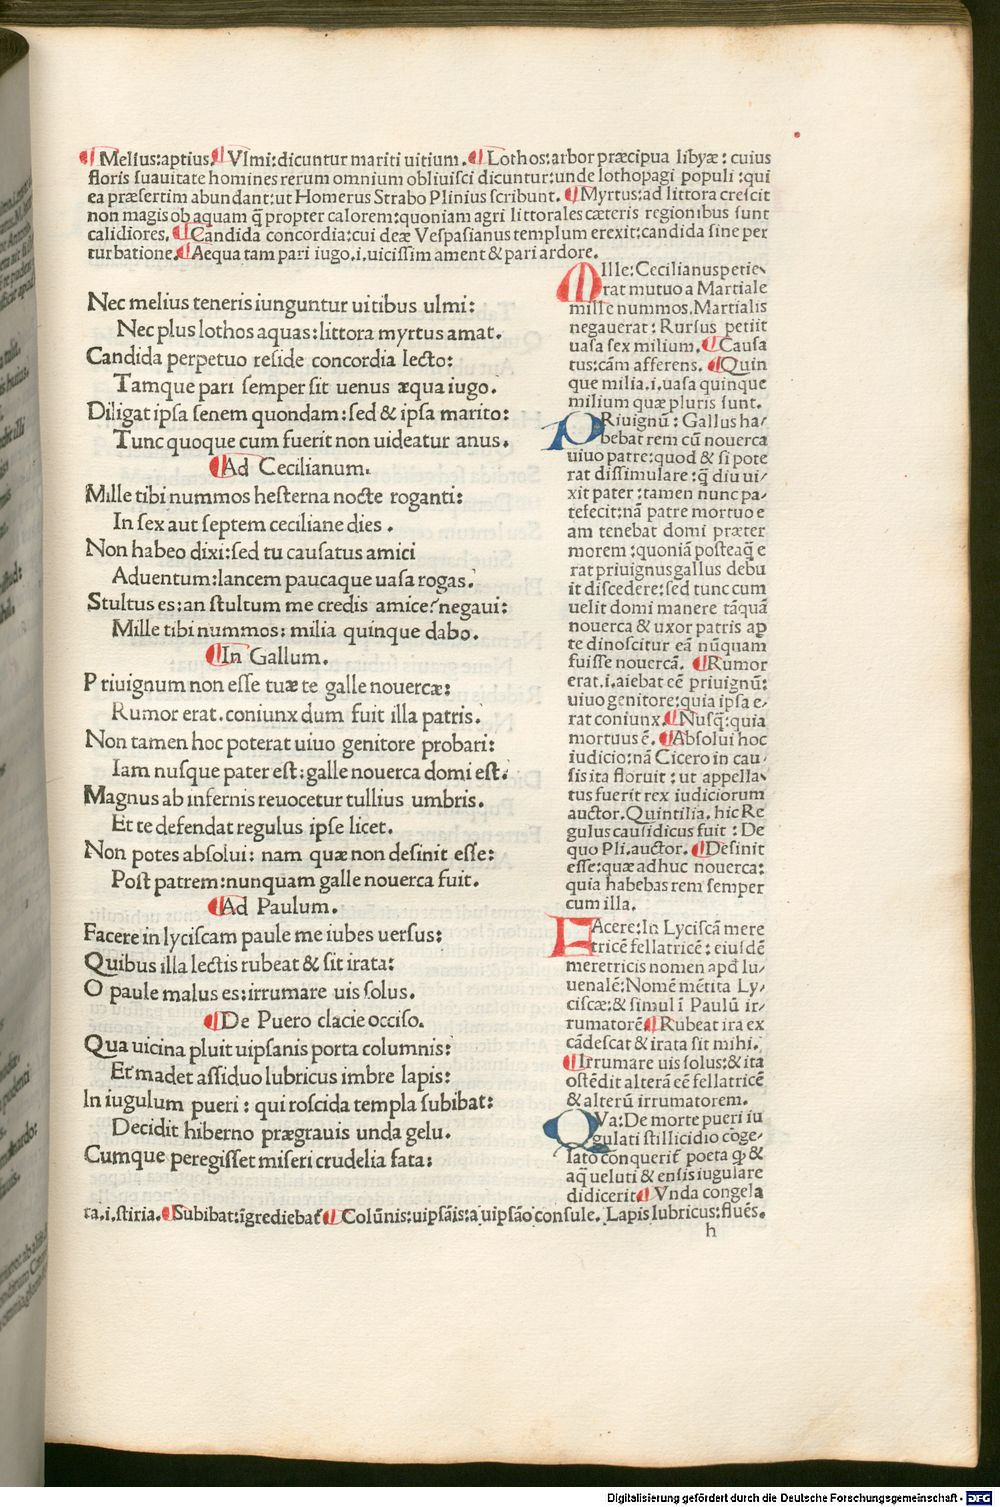 ¶ Melius:aptius.¶ Vlmi:dicuntur mariti uitium.¶ Lothos:arbor præcipua libyæ: cuius
floris suauitate homines rerum omnium obliuisci dicuntur:unde lothopagi populi :qui
ea præsertim abundant:ut Homerus Strabo Plinius scribunt. ¶ Myrtus:ad littora crescit
non magis ob aquam q̃ propter calorem:quoniam agri littorales cæteris regionibus sunt
calidiores. ¶ Candida concordia:cui deæ Vespasianus templum erexit:candida sine per
turbatione.¶ Aequa tam pari iugo.i.uicissim ament & pari ardore.
Nec melius teneris iunguntur uitibus ulmi:
Nec plus lothos aquas:littora myrtus amat.
Candida perpetuo reside concordia lecto:
Tamque pari semper sit uenus æqua iugo.
Diligat ipsa senem quondam:sed & ipsa marito:
Tunc quoque cum fuerit non uideatur anus.
¶ Ad Cecilianum.
Mille tibi nummos hesterna nocte roganti:
In sex aut septem ceciliane dies.
Non habeo dixi:sed tu causatus amici
Aduentum:lancem paucaque uasa rogas.
Stultus es:an stultum me credis amice?negaui:
Mille tibi nummos: milia quinque dabo.
¶ In Gallum.
Priuignum non esse tuæ te galle nouercæ:
Rumor erat.coniunx dum fuit illa patris.
Non tamen hoc poterat uiuo genitore probari:
Iam nusque pater est:galle nouerca domi est.
Magnus ab infernis reuocetur tullius umbris.
Et te defendat regulus ipse licet.
Non potes absolui: nam quæ non desinit esse:
Post patrem:nunquam galle nouerca fuit.
¶ Ad Paulum.
Facere in lyciscam paule me iubes uersus:
Quibus illa lectis rubeat & sit irata:
O paule malus es:irrumare uis solus.
¶ De Puero clacie occiso.
Qua uicina pluit uipsanis porta columnis:
Et madet assiduo lubricus imbre lapis:
In iugulum pueri: qui roscida templa subibat:
Decidit hiberno prægrauis unda gelu.
Cumque peregisset miseri crudelia fata:
Mille:Cecilianus petie
rat mutuo a Martiale
mille nummos.Martialis
negauerat: Rursus petiit
uasa sex milium. ¶ Causa
tus:cãm afferens. ¶ Quin
que milia.i.uasa quinque
milium quæ pluris sunt.
PRiuignũ: Gallus ha/
bebat rem cũ nouerca
uiuo patre:quod & si pote
rat dissimulare:q̃ diu ui/
xit pater:tamen nunc pa/
tefecit:nã patre mortuo e
am tenebat domi præter
morem:quoniã posteaq̃ e
rat priuignus gallus debu
it discedere:sed tunc cum
uelit domi manere tãquã
nouerca & uxor patris ap
te dinoscitur eã nũquam
fuisse nouercã. ¶ Rumor
erat.i.aiebat cẽ priuignũ:
uiuo genitore:quia ipsa e/
rat coniunx.¶ Nusq̃:quia
mortuus ẽ. ¶ Absolui hoc
iudicio:nã Cicero in cau/
sis ita floruit: ut appella
tus fuerit rex iudiciorum
auctor.Quintilia.hic Re
gulus causidicus fuit: De
quo Pli.auctor. ¶ Desinit
esse:quæ adhuc nouerca:
quia habebas rem semper
cum illa.
FAcere:In Lyciscã mere
tricẽ fellatricẽ: eiusdẽ
meretricis nomen apđ Iu/
uenalẽ:Nomẽ mẽtita Ly/
ciscæ:& simul ĩ Paulũ ir/
rumatorẽ.¶ Rubeat ira ex
cãdescat & irata sit mihi.
¶ Irrumare uis solus:& ita
ostẽdit alterã cẽ fellatricẽ
& alterũ irrumatorem.
QVa:De morte pueri iu
gulati stillicidio cõge/
lato conqueriť poeta q & 
aq̃ ueluti & ensis iugulare
didicerit¶ Vnda congela
ta.i.stiria.¶ Subibat:ĩgrediebať¶ Colũnis:uipsãis:a uipsão consule. Lapis lubricus:fluẽs.
h
Digitalisierung gefördert durch die Deutsche Forschungsgemeinschaft - DFG